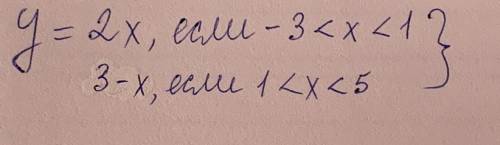 y = 2x, если -3 < x < 1 }
3-x, если 1 < x < 5